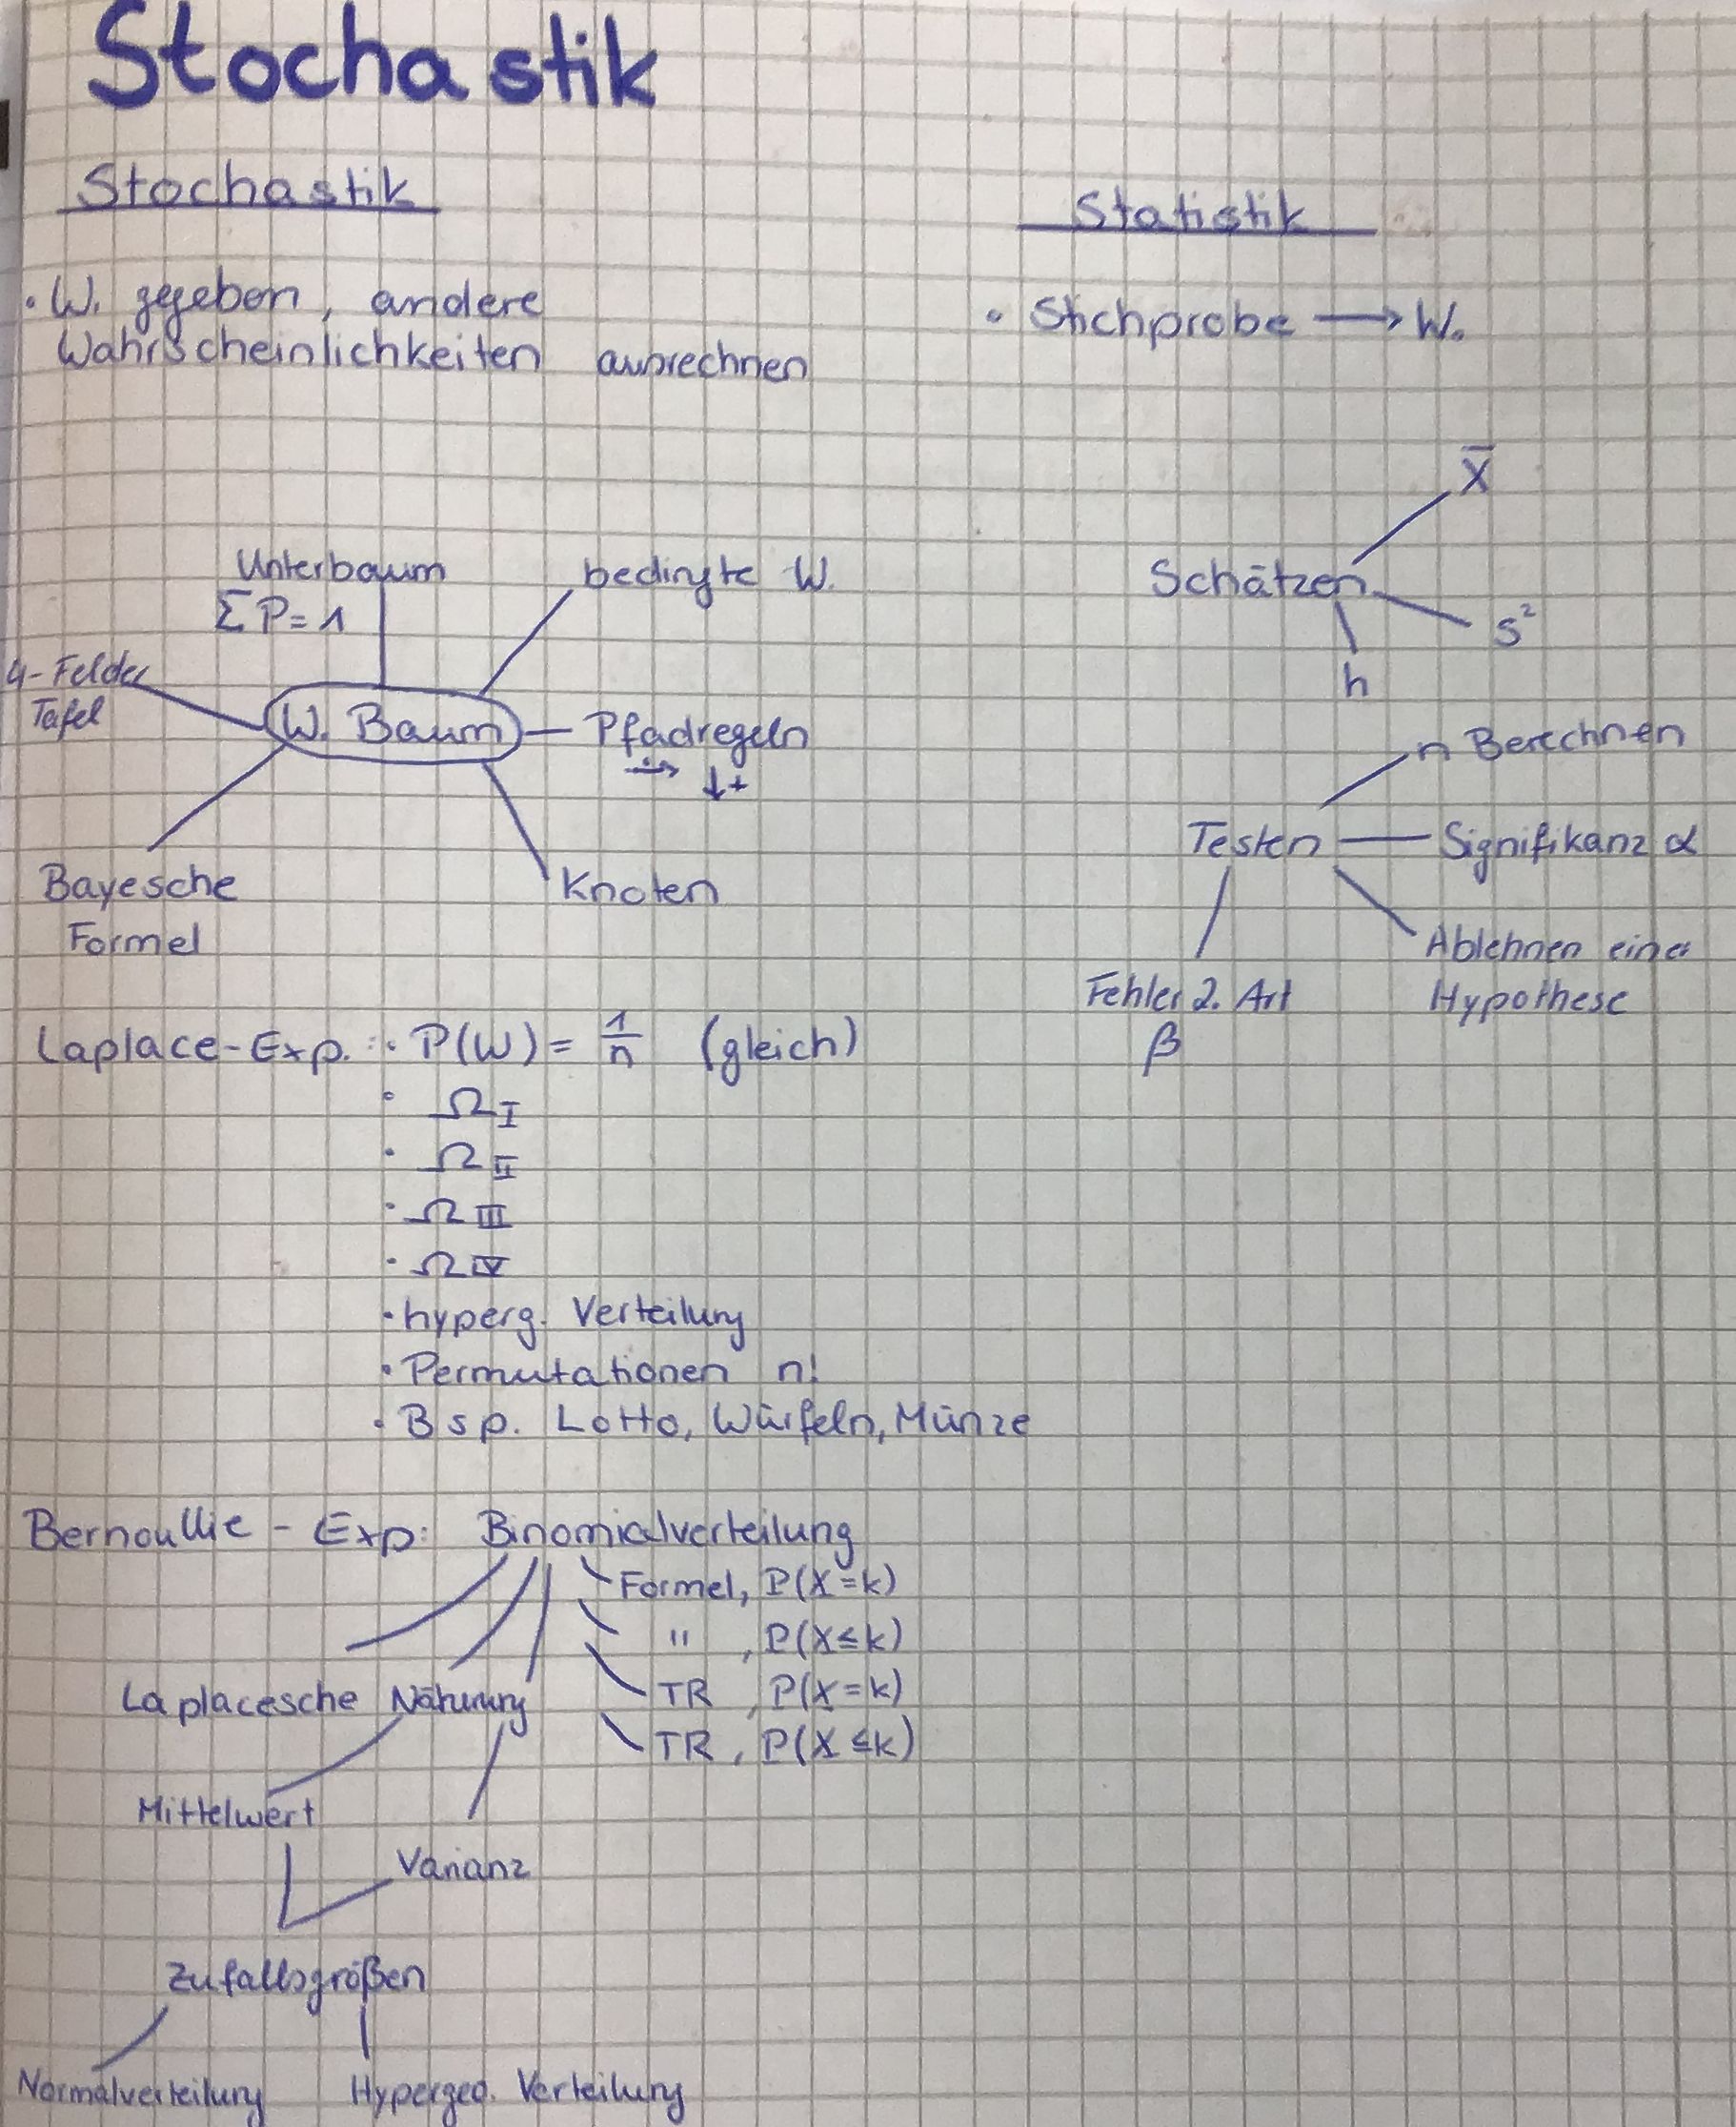 Stochastik
Stochastik
• W. gegeben, andere
Wahrscheinlichkeiten ausrechnen
Unterbaum
ΣP=1
bedingte W.
4-Felder
Tafel
W. Baum
Pfadregeln
→ ↓+
Bayesche
Formel
Knoten
Laplace-Exp. : • P(W) = 1/n (gleich)
• Ω I
• Ω II
• Ω III
• Ω IV
• hyperg. Verteilung
• Permutationen n!
• Bsp. Lotto, Würfeln, Münze
Bernoullie - Exp: Binomialverteilung
Formel, P(X=k)
" , P(X≤k)
TR , P(X=k)
TR , P(X≤k)
Laplacesche Näherung
Mittelwert
Varianz
Zufallsgrößen
Normalverteilung
Hypergeo. Verteilung
Statistik
• Stichprobe → W.
x̄
Schätzen
s²
h
n Berechnen
Testen
Signifikanz α
Ablehnen einer
Hypothese
Fehler 2. Art
β